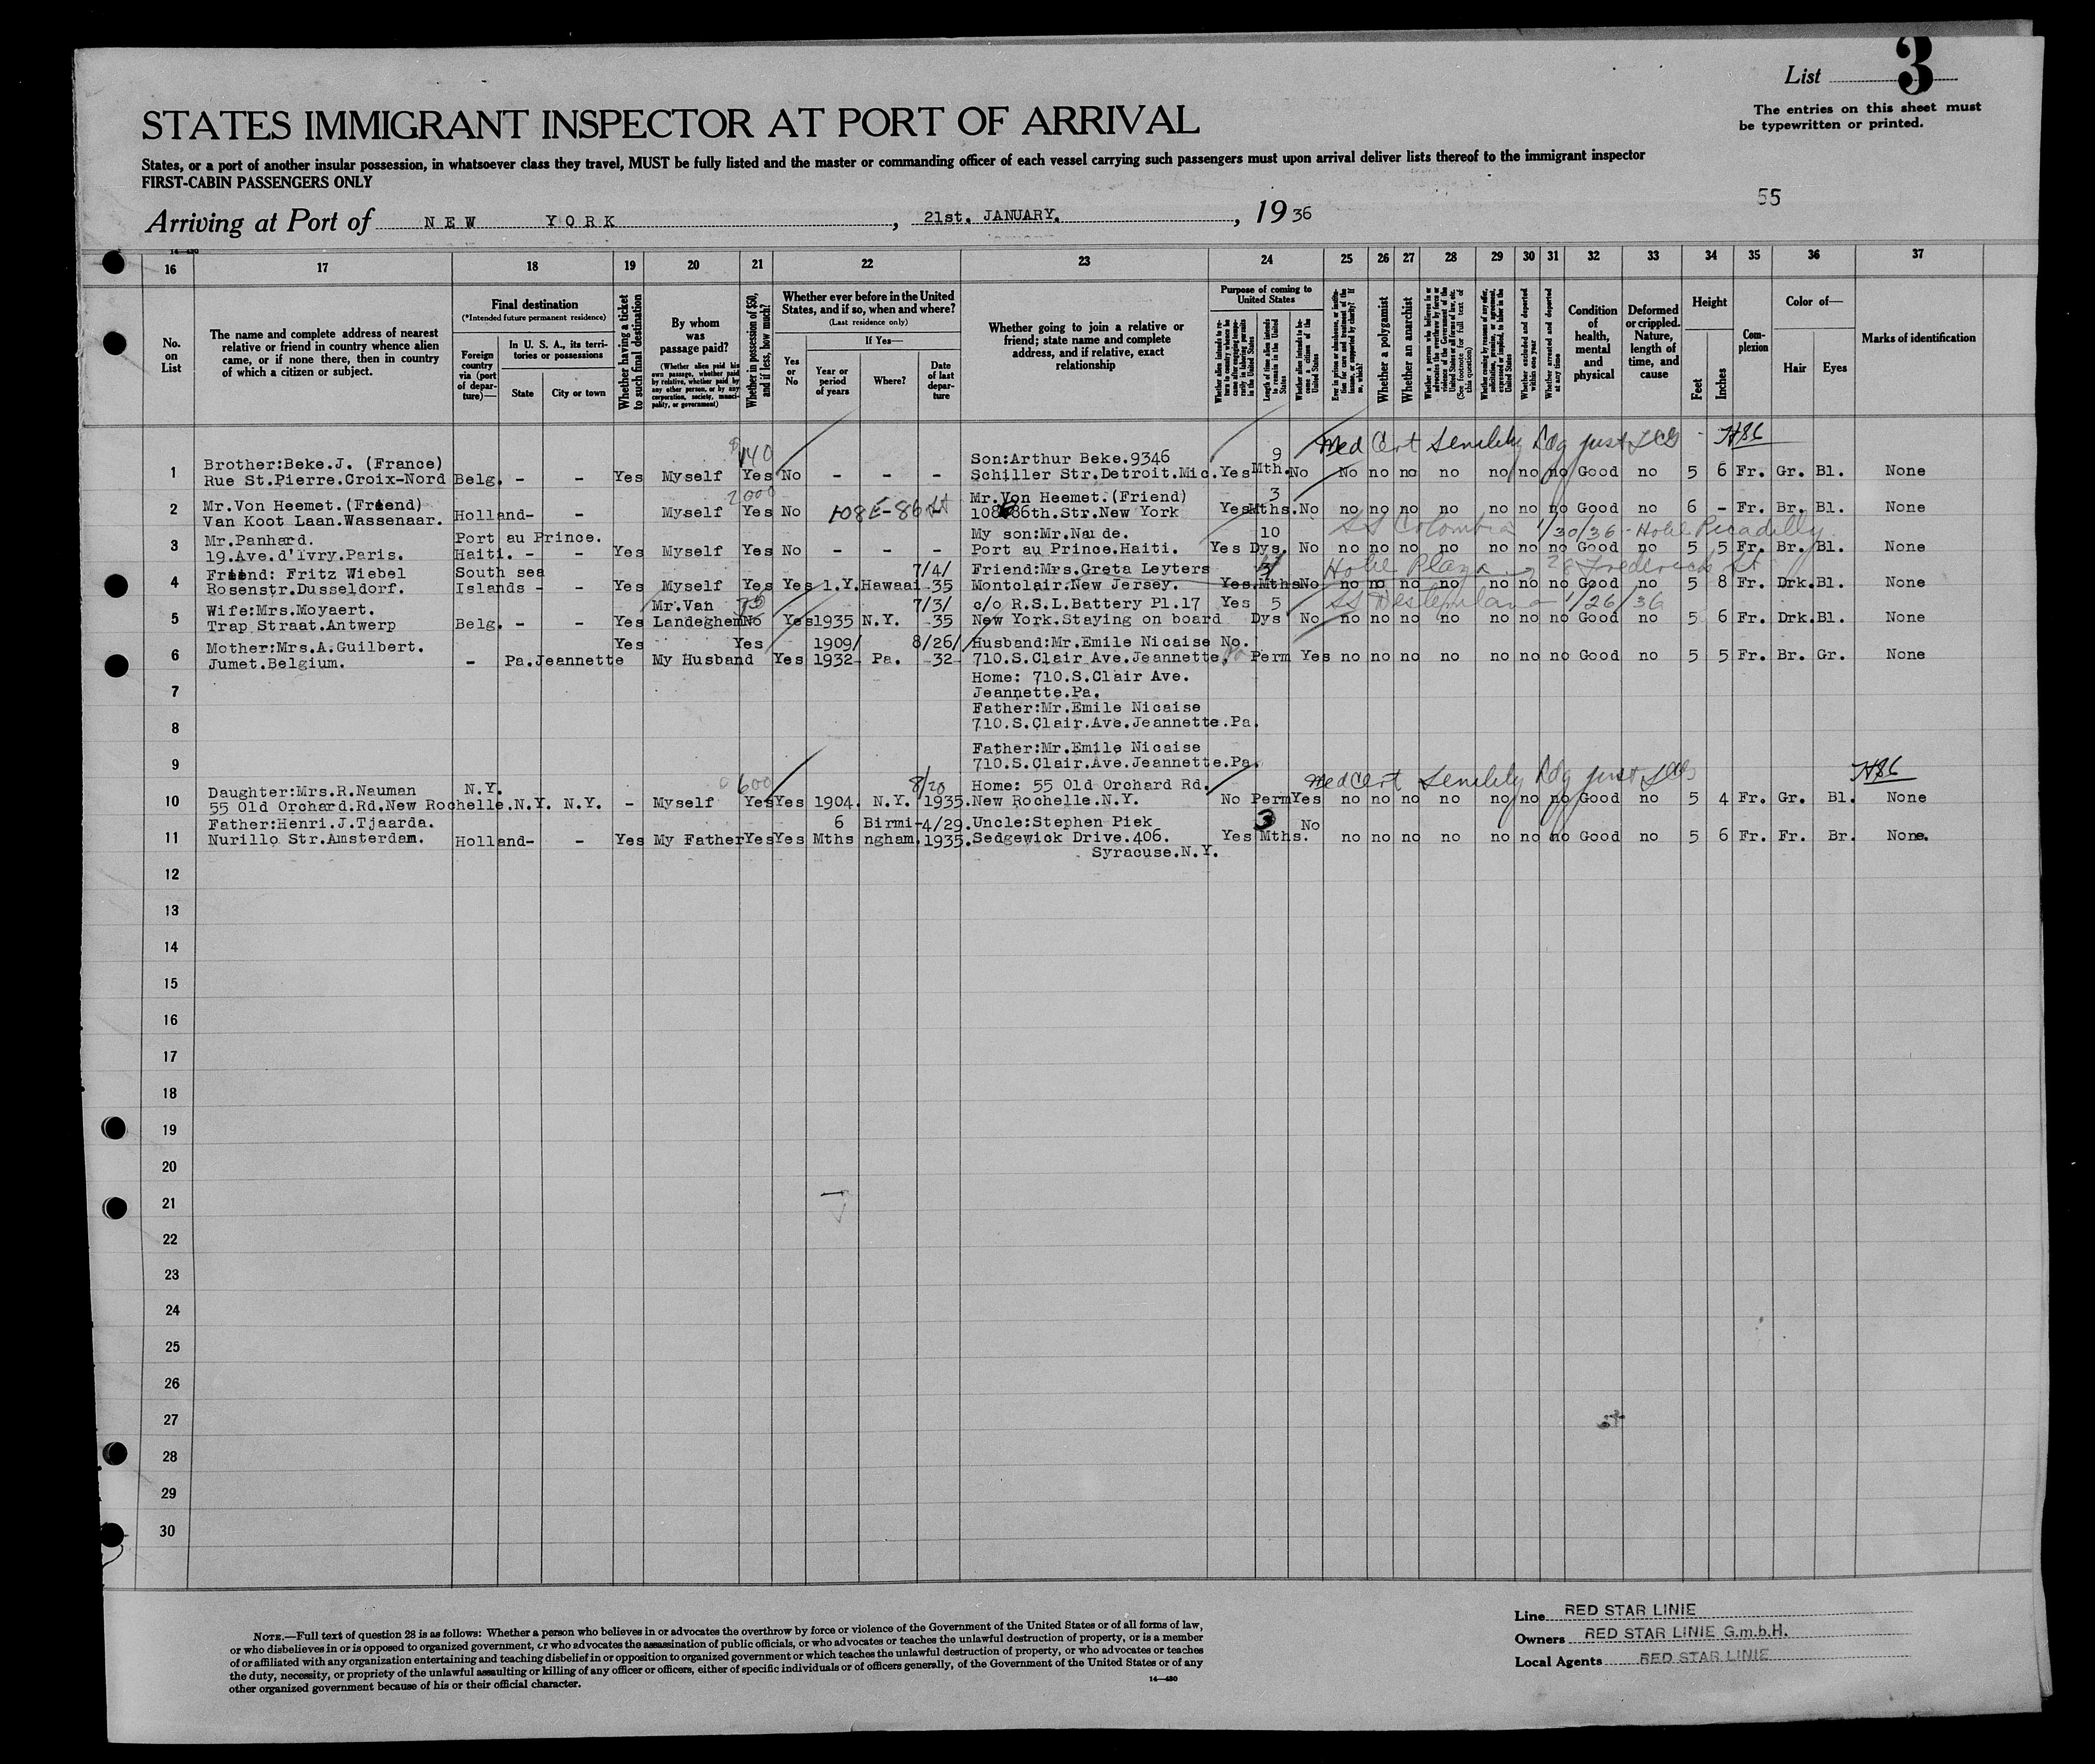 List 3
The entries on this sheet must
be typewritten or printed.
STATES IMMIGRANT INSPECTOR AT PORT OF ARRIVAL
States, or a port of another insular possession, in whatsoever class they travel, MUST be fully listed and the master or commanding officer of each vessel carrying such passengers must upon arrival deliver lists thereof to the immigrant inspector
FIRST-CABIN PASSENGERS ONLY
55
Arriving at Port of NEW YORK, 21st. JANUARY., 1936
14—480
16 17 18 19 20 21 22 23 24 25 26 27 28 29 30 31 32 33 34 35 36 37
No. on List
The name and complete address of nearest
relative or friend in country whence alien
came, or if none there, then in country
of which a citizen or subject.
Final destination
(*Intended future permanent residence)
Foreign country via (port of departure)—
In U. S. A., its territories or possessions
State
City or town
Whether having a ticket to such final destination
By whom was passage paid?
(Whether alien paid his own passage, whether paid by relative, whether paid by any other person, or by any corporation, society, municipality, or government)
Whether in possession of $50, and if less, how much?
Whether ever before in the United States, and if so, when and where?
(Last residence only)
Yes or No
If Yes—
Year or period of years
Where?
Date of last departure
Whether going to join a relative or
friend; state name and complete
address, and if relative, exact
relationship
Purpose of coming to United States
Length of time alien intends to remain in the United States
Whether alien intends to become a citizen of the United States
Whether a polygamist
Whether an anarchist
Whether excluded and deported within one year
Whether arrested and deported at any time
Condition of health, mental and physical
Deformed or crippled. Nature, length of time, and cause
Height
Feet
Inches
Complexion
Color of—
Hair
Eyes
Marks of identification
$140 9 Med Cert Senility
1 Brother:Beke.J. (France) Son:Arthur Beke.9346
Rue St.Pierre.Croix-Nord Belg. - - Yes Myself Yes No - - - Schiller Str.Detroit.Mic. Yes Mth. No No no no no no no no Good no 5 6 Fr. Gr. Bl. None
2000 108 E-86 St
2 Mr.Von Heemet.(Friend) Mr.Von Heemet.(Friend) 3
Van Koot Laan.Wassenaar. Holland- - Myself Yes No 108 86th.Str.New York Yes Mths. No no no no no no no no Good no 6 - Fr. Br. Bl. None
SS Colombia 1/30/36 - Hotel Picadilly
3 Mr.Panhard. Port au Prince. My son:Mr.Nade. 10
19.Ave.d'Ivry.Paris. Haiti. - - Yes Myself Yes No - - - Port au Prince.Haiti. Yes Dys. No no no no no no no no Good no 5 5 Fr. Br. Bl. None
Hotel Plaza
4 Friend: Fritz Wiebel South sea 7/4/ Friend:Mrs.Greta Leyters
Rosenstr.Dusseldorf. Islands - - Yes Myself Yes Yes 1.Y. Hawaai -35 Montclair.New Jersey. Yes. Mths No no no no no no no no Good no 5 8 Fr. Drk. Bl. None
SS Westernland 1/26/36
5 Wife:Mrs.Moyaert. Mr.Van 7/3/ c/o R.S.L.Battery Pl.17 Yes 5
Trap Straat.Antwerp Belg. - - Yes Landeghem No Yes 1935 N.Y. -35 New York.Staying on board Dys No no no no no no no no Good no 5 6 Fr. Drk. Bl. None
6 Mother:Mrs.A.Guilbert. Yes Yes 1909/ 8/26/ Husband:Mr.Emile Nicaise No.
Jumet.Belgium. - Pa. Jeannette My Husband Yes 1932- Pa. -32- 710.S.Clair Ave.Jeannette, Pa. Perm Yes no no no no no no no Good no 5 5 Fr. Br. Gr. None
7 Home: 710.S.Clair Ave.
Jeannette.Pa.
8 Father:Mr.Emile Nicaise
710.S.Clair.Ave.Jeannette.Pa.
9 Father:Mr.Emile Nicaise
710.S.Clair.Ave.Jeannette.Pa.
600 Med Cert Senility
10 Daughter:Mrs.R.Nauman N.Y. 8/20 Home: 55 Old Orchard Rd.
55 Old Orchard.Rd.New Rochelle.N.Y. N.Y. - Myself Yes Yes 1904. N.Y. 1935. New Rochelle.N.Y. No Perm Yes no no no no no no no Good no 5 4 Fr. Gr. Bl. None
11 Father:Henri.J.Tjaarda. 6 Birmi- 4/29. Uncle:Stephen Piek 3 No
Nurillo Str.Amsterdam. Holland- - Yes My Father Yes Yes Mths ngham. 1935. Sedgewick Drive.406. Yes Mths. no no no no no no no Good no 5 6 Fr. Fr. Br. None.
Syracuse.N.Y.
12
13
14
15
16
17
18
19
20
21
22
23
24
25
26
27
28
29
30
NOTE.—Full text of question 28 is as follows: Whether a person who believes in or advocates the overthrow by force or violence of the Government of the United States or of all forms of law,
or who disbelieves in or is opposed to organized government, or who advocates the assassination of public officials, or who advocates or teaches the unlawful destruction of property, or is a member
of or affiliated with any organization entertaining and teaching disbelief in or opposition to organized government or which teaches the unlawful destruction of property, or who advocates or teaches
the duty, necessity, or propriety of the unlawful assaulting or killing of any officer or officers, either of specific individuals or of officers generally, of the Government of the United States or of any
other organized government because of his or their official character.
14—480
Line RED STAR LINIE
Owners RED STAR LINIE G.m.b.H.
Local Agents RED STAR LINIE